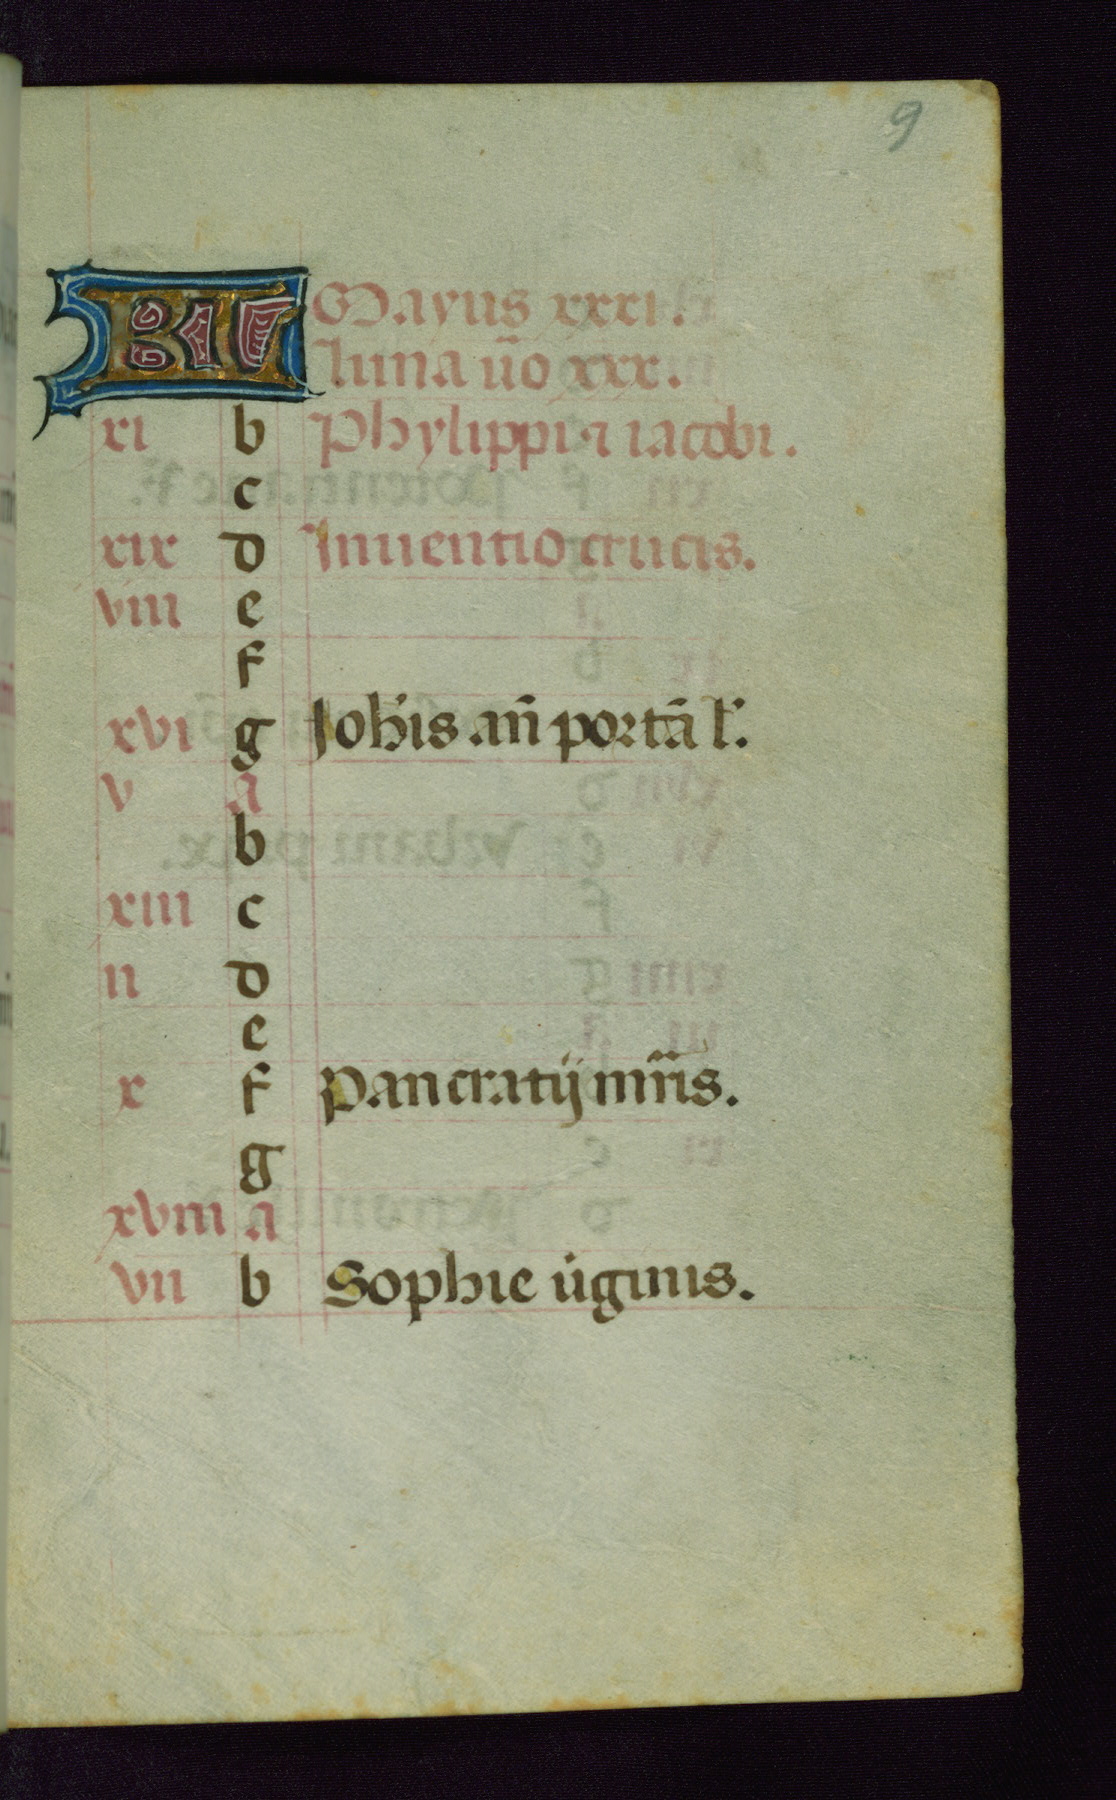 9
KL Mayus xxxi.
Luna u̅o xxx.
xi b Phylippi ⁊ iacobi.
c
xix d Inuentio crucis.
viii e
f
xvi g Joh'is an̅ porta̅ l'.
v a
b
xiii c
ii d
e
x f Pancratij mr̅is.
g
xviii a
vii b Sophie u̇ginis.